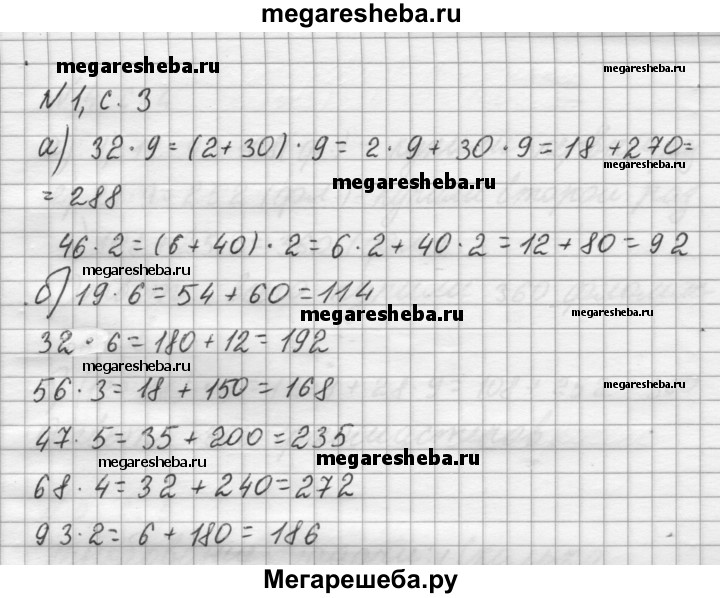 megaresheba.ru
megaresheba.ru
megaresheba.ru
N 1, с. 3
а) 32 · 9 = (2 + 30) · 9 = 2 · 9 + 30 · 9 = 18 + 270 =
megaresheba.ru
megaresheba.ru
= 288
46 · 2 = (6 + 40) · 2 = 6 · 2 + 40 · 2 = 12 + 80 = 92
megaresheba.ru
б) 19 · 6 = 54 + 60 = 114
megaresheba.ru
megaresheba.ru
32 · 6 = 180 + 12 = 192
megaresheba.ru
56 · 3 = 18 + 150 = 168
megaresheba.ru
47 · 5 = 35 + 200 = 235
megaresheba.ru
megaresheba.ru
68 · 4 = 32 + 240 = 272
93 · 2 = 6 + 180 = 186
megaresheba.ru
Мегарешеба.ру